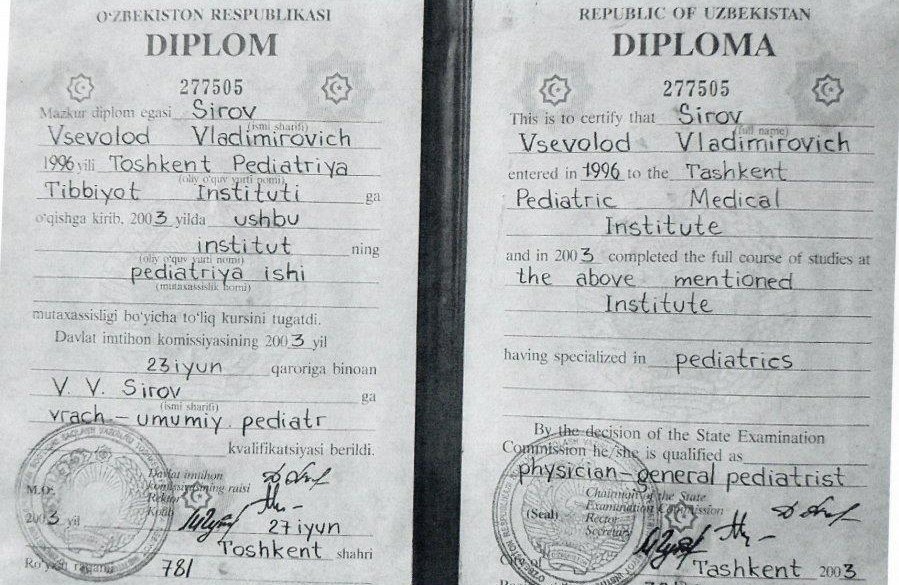 O'ZBEKISTON RESPUBLIKASI
DIPLOM
277505
Mazkur diplom egasi Sirov
(ismi sharifi)
Vsevolod Vladimirovich
1996 yili Toshkent Pediatriya
(oliy o'quv yurti nomi)
Tibbiyot Instituti ga
o'qishga kirib, 2003 yilda ushbu
institut ning
(oliy o'quv yurti nomi)
pediatriya ishi
(mutaxassislik nomi)
mutaxassisligi bo'yicha to'liq kursini tugatdi.
Davlat imtihon komissiyasining 2003 yil
23 iyun qaroriga binoan
V. V. Sirov ga
(ismi sharifi)
vrach - umumiy pediatr
kvalifikatsiyasi berildi.
Davlat imtihon
komissiyasining raisi
M.O. Rektor
Kotib
2003 yil 27 iyun
Toshkent shahri
Ro'yxat raqami 781
REPUBLIC OF UZBEKISTAN
DIPLOMA
277505
This is to certify that Sirov
(full name)
Vsevolod Vladimirovich
entered in 1996 to the Tashkent
Pediatric Medical
Institute
and in 2003 completed the full course of studies at
the above mentioned
Institute
having specialized in pediatrics
By the decision of the State Examination
Commission he/she is qualified as
physician - general pediatrist
Chairman of the State
Examination Commission
(Seal) Rector
Secretary
Tashkent 2003